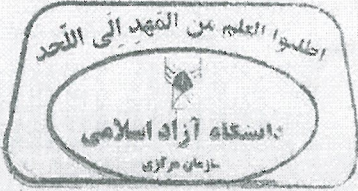 اطلبوا العلم من المَهدِ اِلَی اللّحد
دانشگاه آزاد اسلامی
سازمان مرکزی